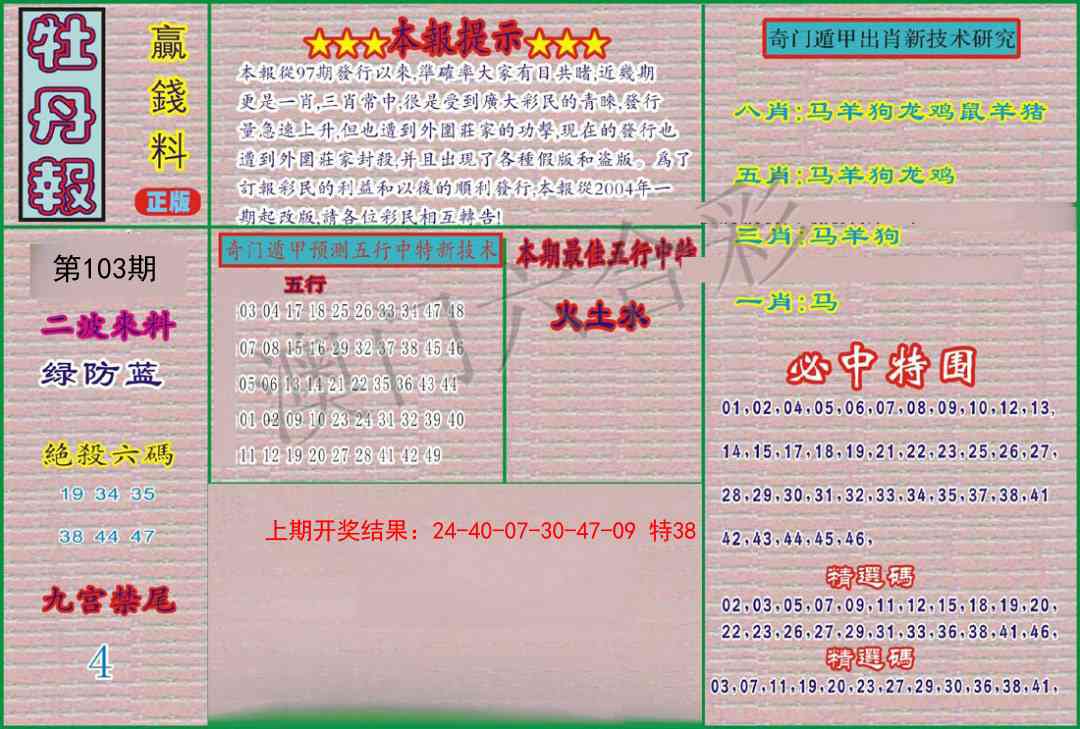 牡丹報
贏錢料
正版
★★★本報提示★★★
本報從97期發行以來,準確率大家有目共睹,近幾期
更是一肖,三肖常中,很是受到廣大彩民的青睞,發行
量急速上升,但也遭到外圍莊家的功擊,現在的發行也
遭到外圍莊家封殺,并且出現了各種假版和盜版。爲了
訂報彩民的利益和以後的順利發行,本報從2004年一
期起改版,請各位彩民相互轉告!
奇门遁甲出肖新技术研究
八肖:马羊狗龙鸡鼠羊猪
五肖:马羊狗龙鸡
三肖:马羊狗
一肖:马
第103期
二波來料
绿防蓝
絕殺六碼
19 34 35
38 44 47
九宫禁尾
4
奇门遁甲预测五行中特新技术
五行
03 04 17 18 25 26 33 34 47 48
07 08 15 16 29 32 37 38 45 46
05 06 13 14 21 22 35 36 43 44
01 02 09 10 23 24 31 32 39 40
11 12 19 20 27 28 41 42 49
本期最佳五行中特
火土水
上期开奖结果：24-40-07-30-47-09 特38
必中特围
01,02,04,05,06,07,08,09,10,12,13,
14,15,17,18,19,21,22,23,25,26,27,
28,29,30,31,32,33,34,35,37,38,41
42,43,44,45,46,
精選碼
02,03,05,07,09,11,12,15,18,19,20,
22,23,26,27,29,31,33,36,38,41,46,
精選碼
03,07,11,19,20,23,27,29,30,36,38,41,
澳门六合彩